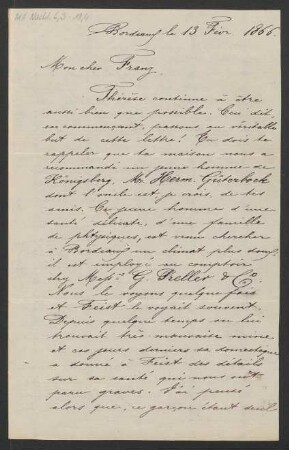 Bordeaux le 13 Févr 1866.
Mon cher Franz.
Thérèse continue à être
aussi bien que possible. Ceci dit,
en commençant, passons au véritable
but de cette lettre! Tu dois te
rappeler que ta maison nous a
recommandé un jeune homme de
Königsberg, Mr Herm. Güterbock
dont l'oncle est je crois, de tes
amis. Ce jeune homme d'une
santé délicate, d'une famille
de phtysiques, est venu chercher
à Bordeaux un climat plus doux,
il est employé au comptoir
chez Messrs G. Preller & Co.
Nous le voyons quelque fois
et Feist le voyait souvent.
Depuis quelque temps on lui
trouvait très mauvaise mine
et ces jours derniers sa domestique
a donné à Feist des détails
sur sa santé qui nous ont
paru graves. J'ai pensé
alors que, ce garçon étant seul